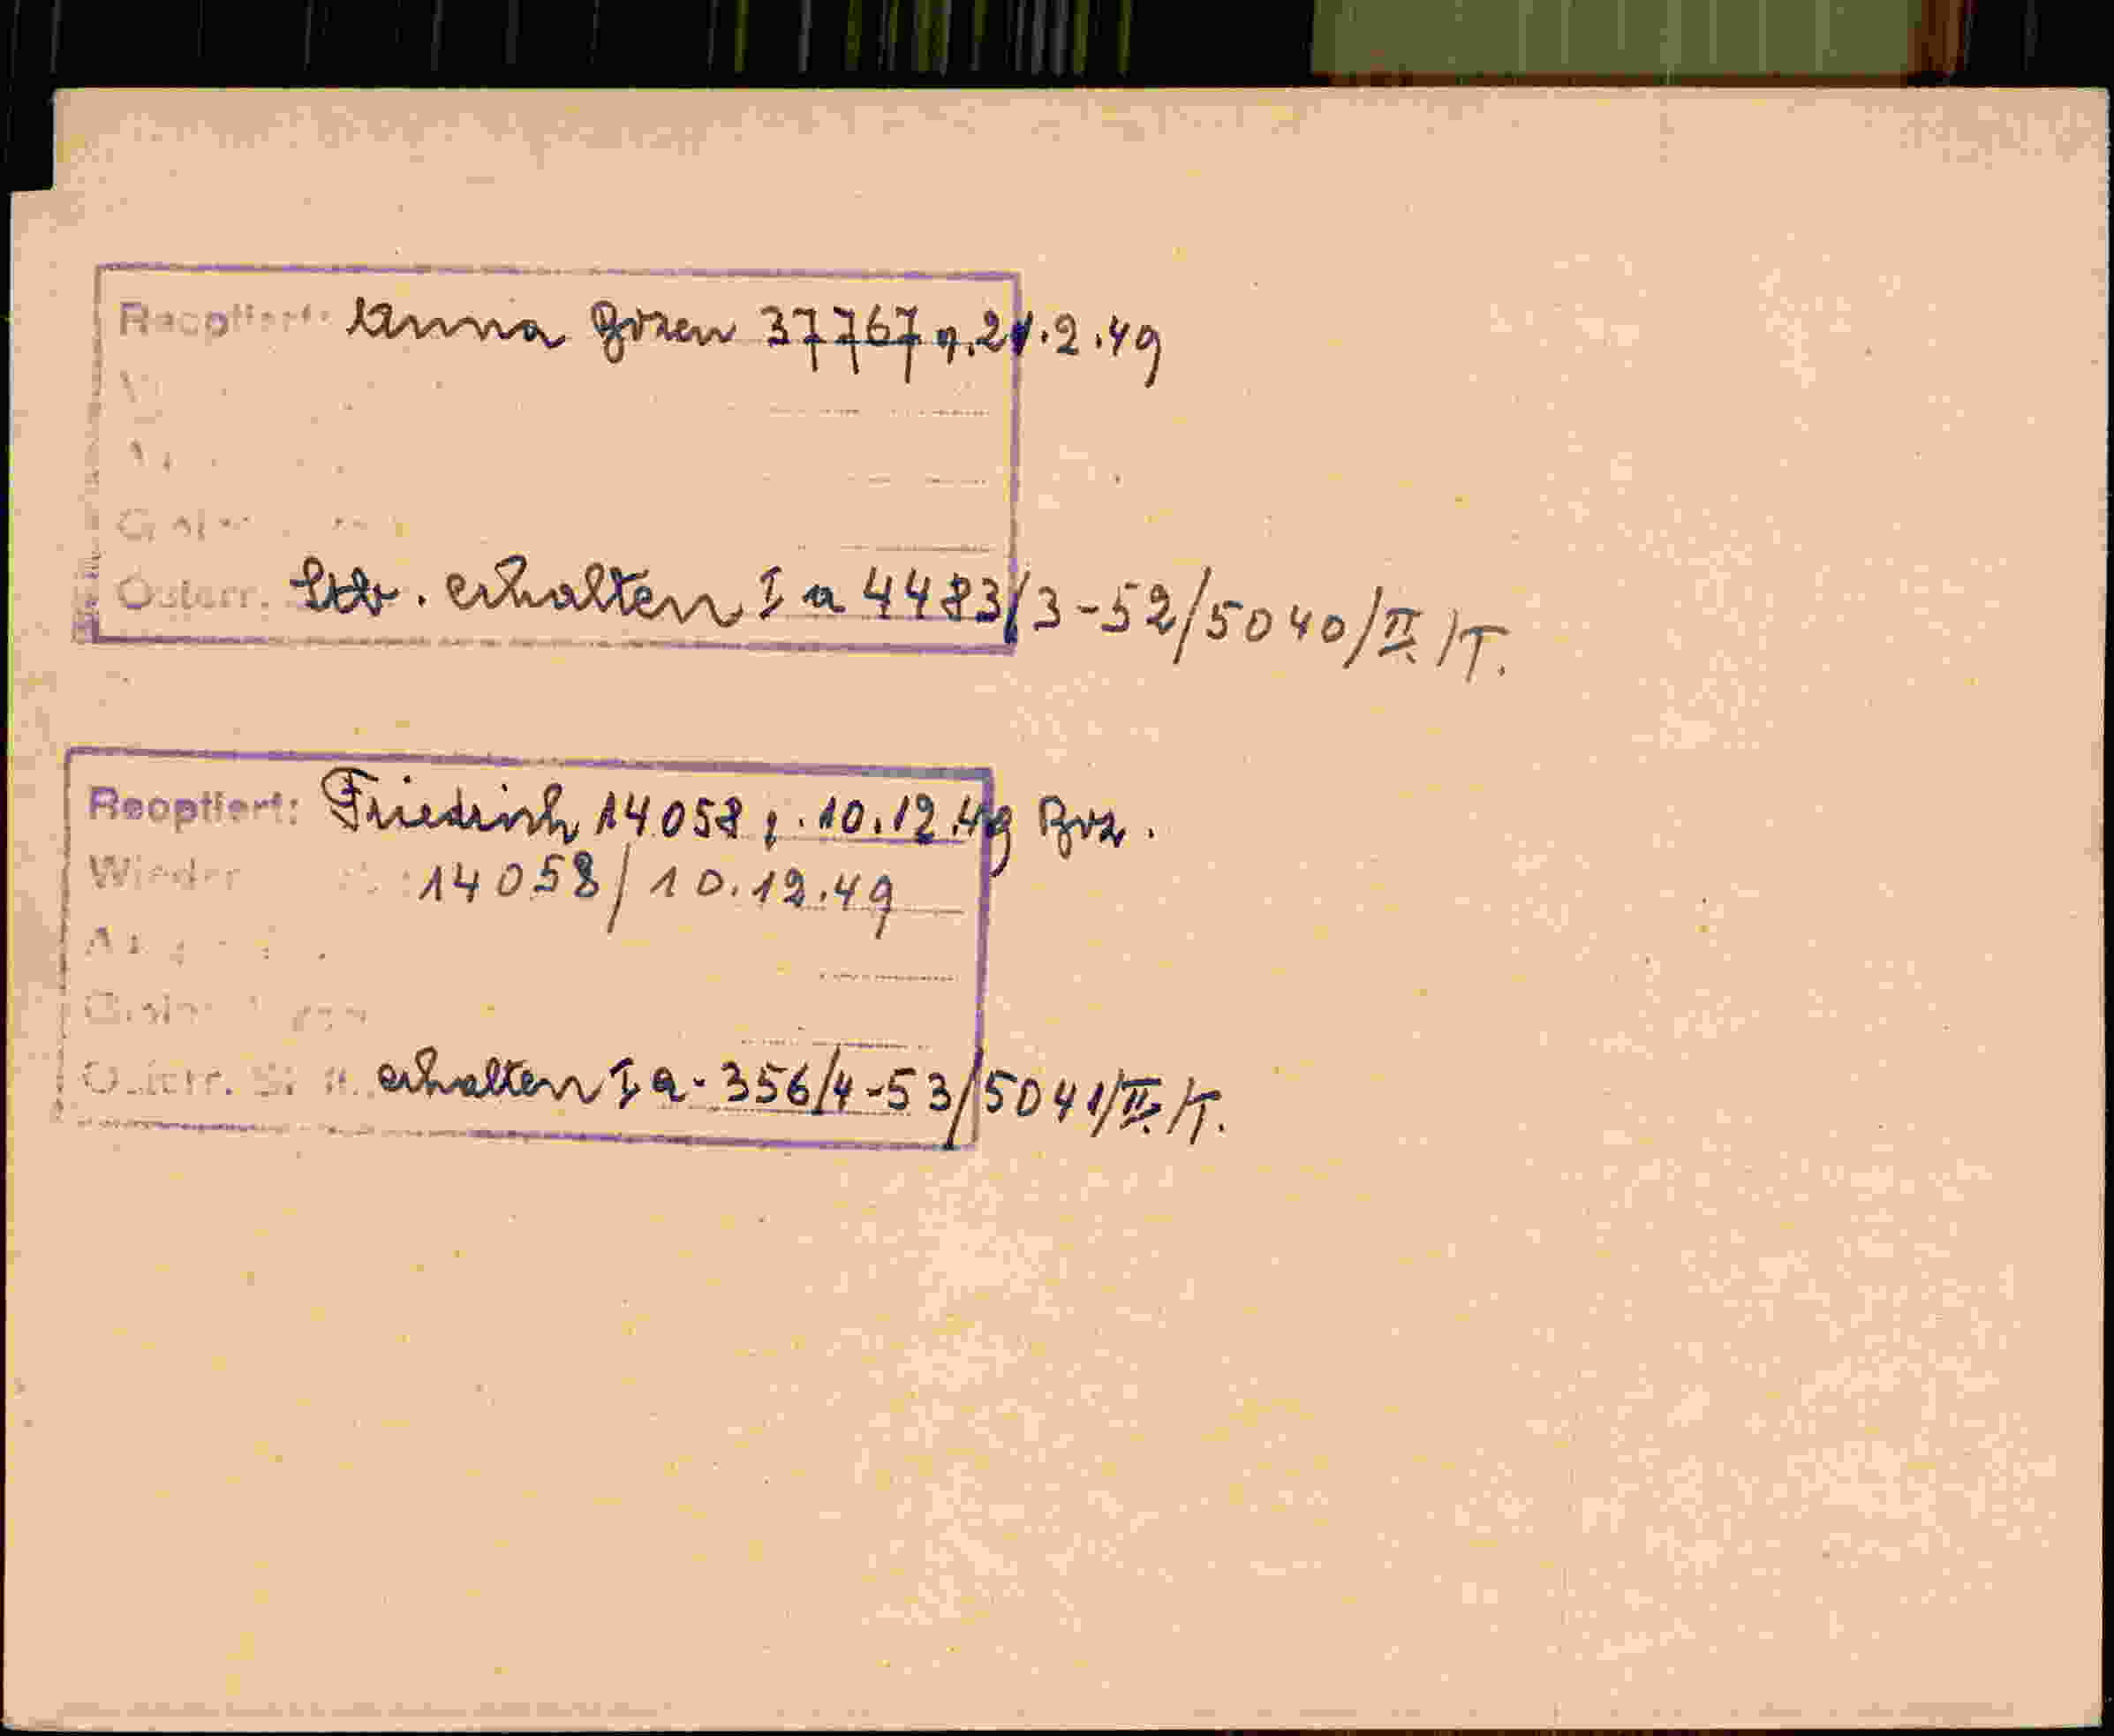 Reoptiert: Anna Bozen 37767 v. 21.2.49
Österr. Stb. erhalten I a 4483/3-52/5040/II/T.
Reoptiert: Friedrich 14058 v. 10.12.49 Boz.
Wieder 14058/10.12.49
Österr. St. erhalten I a - 356/4-53/5041/II/T.